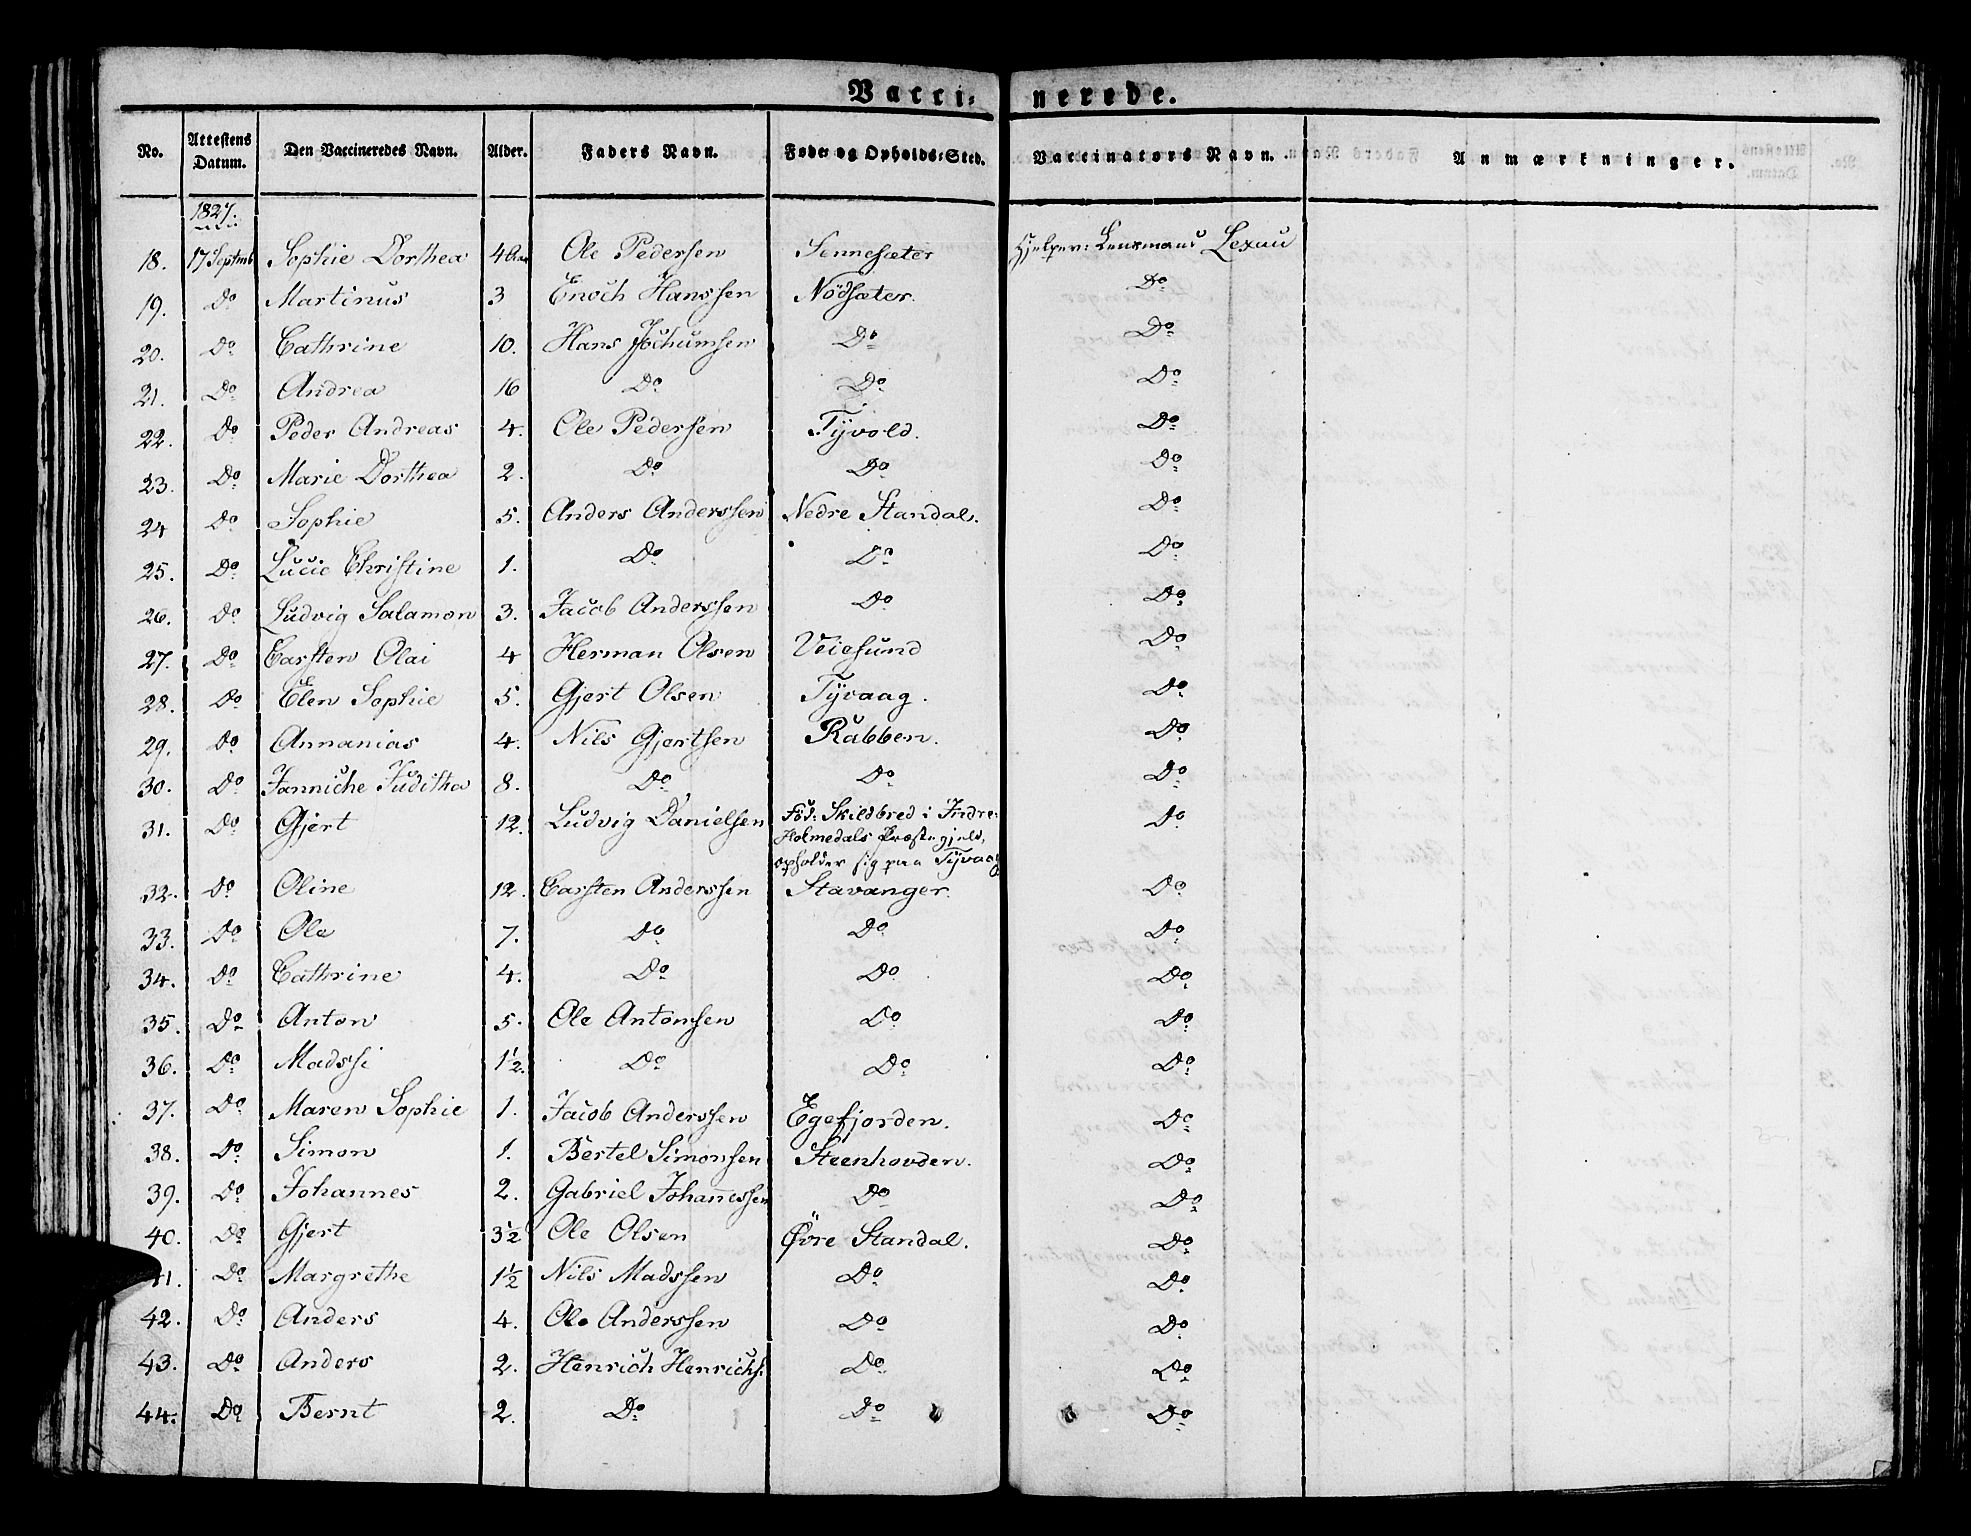 Vacci-nerede.
No. Attestens Datum. Den Vaccineredes Navn. Alder. Faders Navn. Føde- og Opholds-Sted. Vaccinators Navn. Anmærkninger.
1827.
18. 17 Septmb Sophie Dorthea 4 Aar Ole Pedersen Sennesæter Hjelpev: Lensmand Lexau
19. Do Martinus 3 Enoch Hanssen Nödsæter. Do
20. Do Cathrine 10. Hans Jochumsen Do Do
21. Do Andrea 16 Do Do Do
22. Do Peder Andreas 4. Ole Pedersen Tyvold. Do
23. Do Marie Dorthea 2. Do Do Do
24 Do Sophie 5. Anders Anderssen Nedre Standal. Do
25. Do Lucie Christine 1. Do Do Do
26. Do Ludvig Salamon 3. Jacob Anderssen Do Do
27. Do Carsten Olai 4 Herman Olsen Veiesund Do
28. Do Elen Sophie 5. Gjert Olsen Tyvaag. Do
29. Do Annanias 4. Nils Gjertsen Rabben. Do
30. Do Janniche Juditha 8. Do Do Do
31. Do Gjert 12. Ludvig Danielsen Föd: Skildbred i Indre- Do
Holmedals Præstegjeld,
opholder sig paa Tyvaag
32. Do Oline 12. Carsten Anderssen Stavanger. Do
33. Do Ole 7. Do Do Do
34. Do Cathrine 4. Do Do Do
35. Do Anton 5. Ole Antonsen Do Do
36. Do Madssi 1½. Do Do Do
37. Do Maren Sophie 1. Jacob Anderssen Egefjorden. Do
38. Do Simon 1. Bertel Simonsen Steenhovden. Do
39. Do Johannes 2. Gabriel Johanessen Do Do
40. Do Gjert 3½ Ole Olsen Øvre Standal. Do
41. Do Margrethe 1½ Nils Madssen Do Do
42. Do Anders 4. Ole Anderssen Do Do
43. Do Anders 2. Henrich Henrichs: Do Do
44. Do Bernt 2. Do Do Do